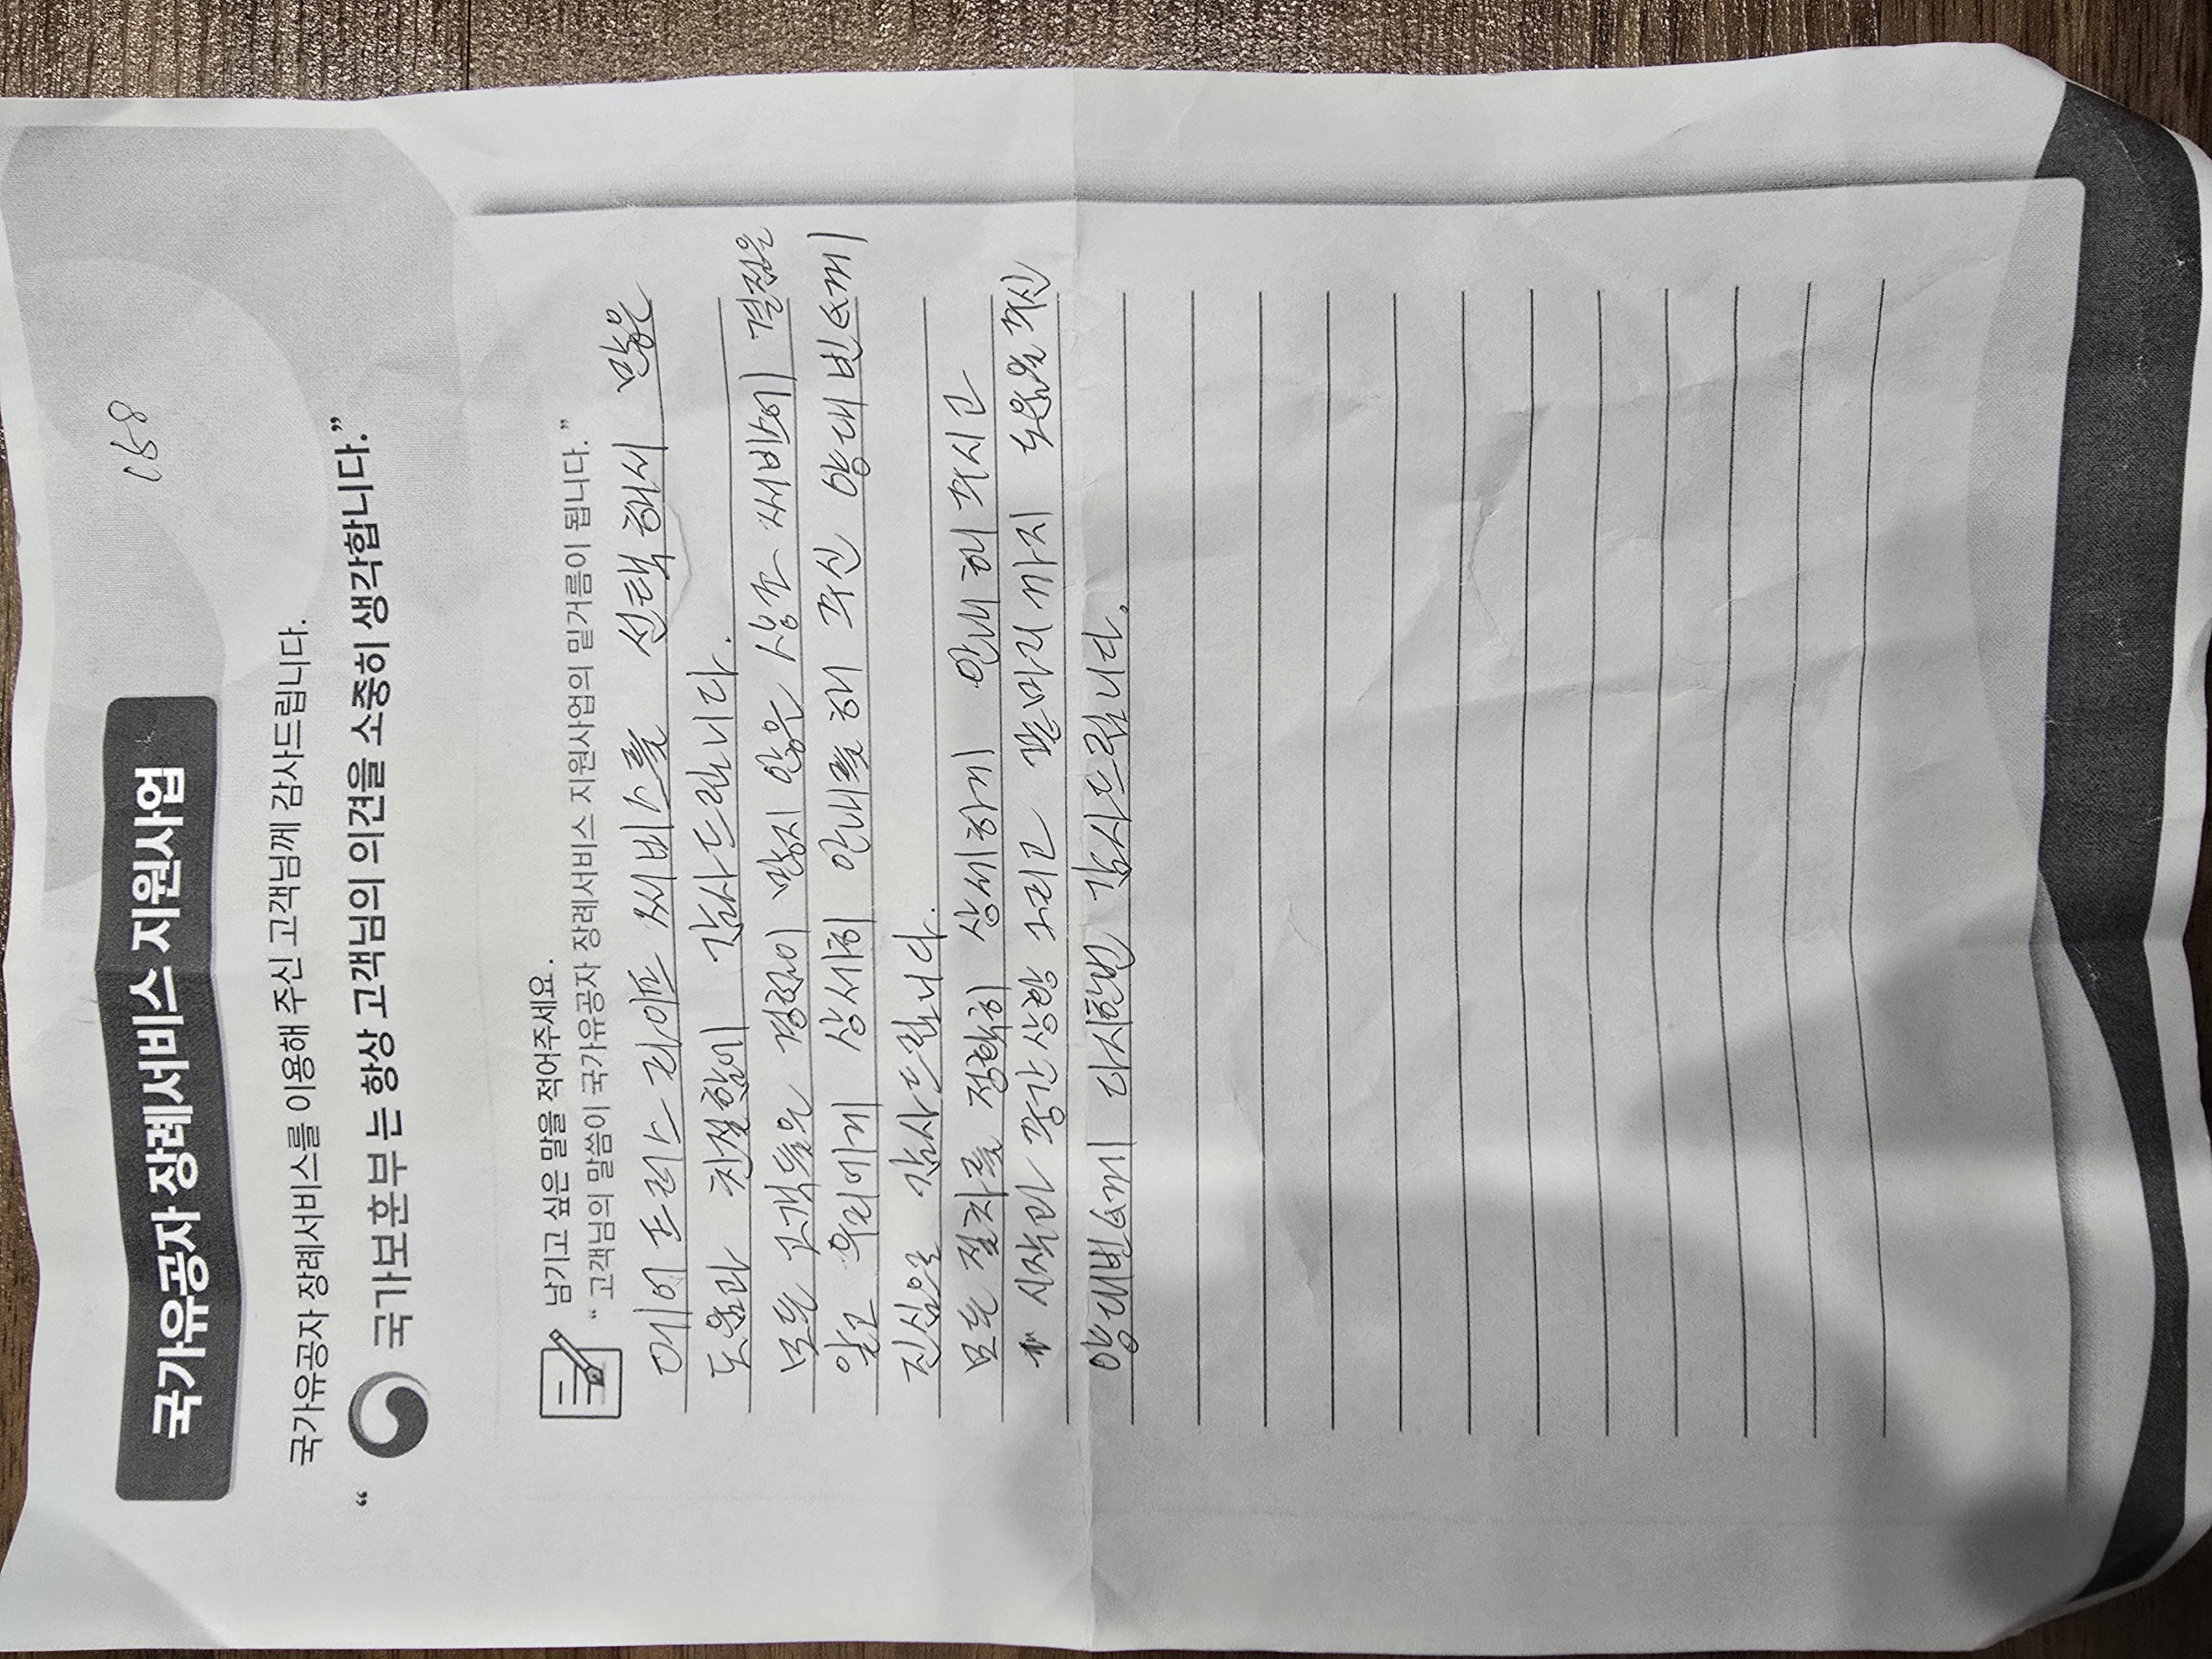 158
국가유공자 장례서비스 지원사업
국가유공자 장례서비스를 이용해 주신 고객님께 감사드립니다.
“ 국가보훈부 는 항상 고객님의 의견을 소중히 생각합니다.”
남기고 싶은 말을 적어주세요 .
“ 고객님의 말씀이 국가유공자 장례서비스 지원사업의 밑거름이 됩니다. ”
에이 플러스 라이프 써비스를 선택해서 많은
도움과 친절함에 감사드립니다.
모든 고객들은 경험이 많지 않은 상조 써비스에 결정을
않고 우리에게 상세히 안내를 해 주신 양대빈님께
진심을 감사드립니다.
모든 절차를 정확히 상세하게 안내해 주시고
시작과 중간상황 그리고 끝마무리까지 도움을 주신
양대빈님께 다시한번 감사드립니다.